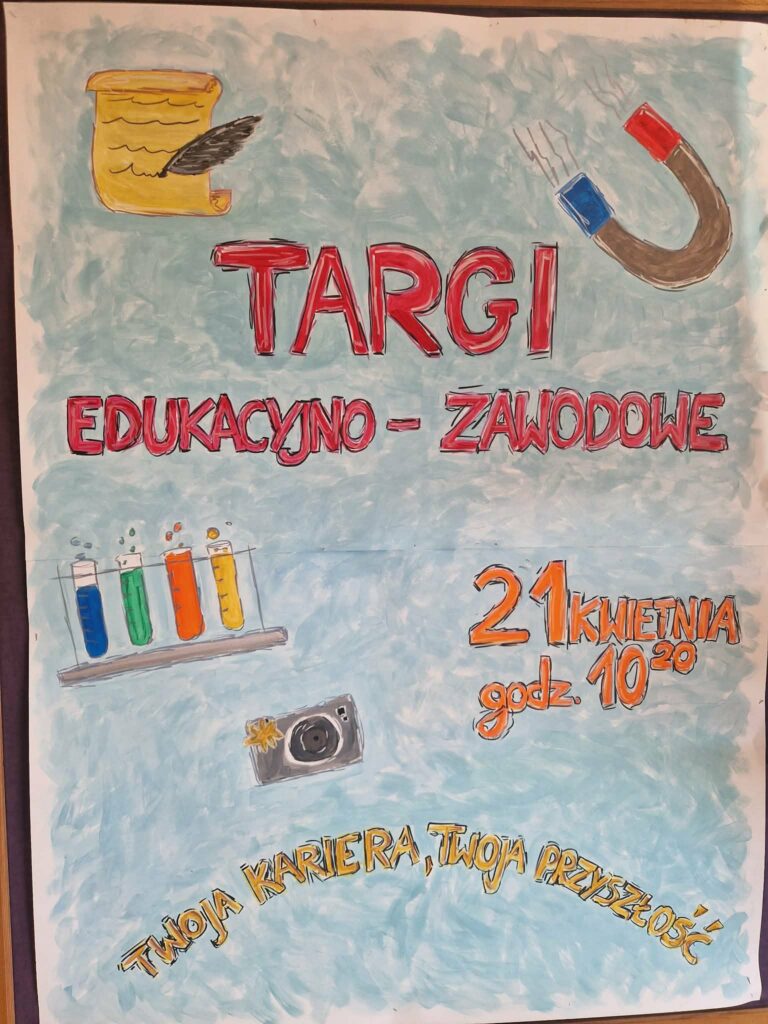 TARGI
EDUKACYJNO - ZAWODOWE
21 KWIETNIA
godz. 10²⁰
TWOJA KARIERA, TWOJA PRZYSZŁOŚĆ